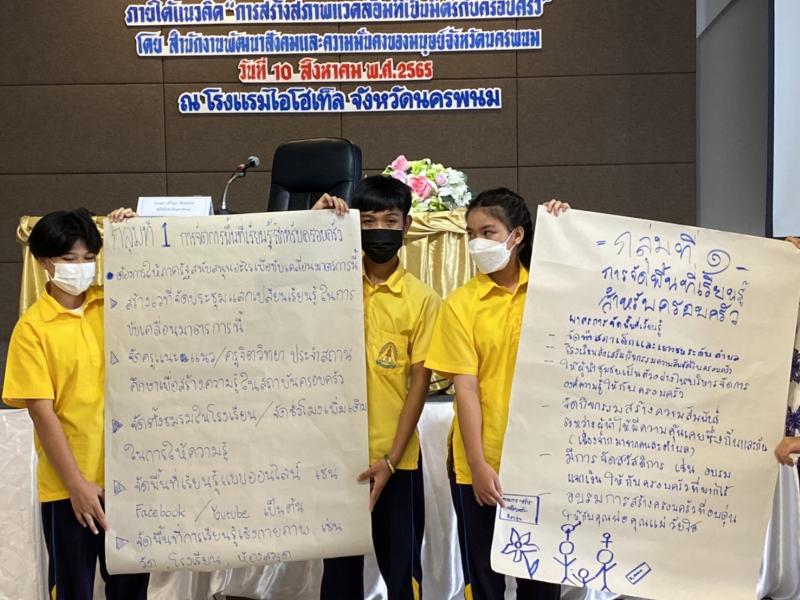 ภายใต้แนวคิด "การสร้างสภาพแวดล้อมที่เป็นมิตรกับครอบครัว"
โดย สำนักงานพัฒนาสังคมและความมั่นคงของมนุษย์จังหวัดนครพนม
วันที่ 10 สิงหาคม พ.ศ.2565
ณ โรงแรมไอโฮเทล จังหวัดนครพนม
กลุ่มที่ 1 การจัดการพื้นที่เรียนรู้สำหรับครอบครัว
ต้องการให้ภาครัฐสนับสนุนอะไรเพื่อขับเคลื่อนมาตรการนี้
สร้างเวทีจัดประชุมแลกเปลี่ยนเรียนรู้ในการ
ขับเคลื่อนมาตรการนี้
จัดครูแนะแนว/ครูจิตวิทยา ประจำสถาน
ศึกษาเพื่อสร้างความรู้ในสถาบันครอบครัว
จัดตั้งชมรมในโรงเรียน/จัดชั่วโมงเพิ่มเติม
ในการให้ความรู้
จัดพื้นที่เรียนรู้แบบออนไลน์ เช่น
Facebook /Youtube เป็นต้น
จัดพื้นที่การเรียนรู้เชิงกายภาพ เช่น
วัด โรงเรียน ห้องสมุด
= กลุ่มที่ ๑ =
การจัดพื้นที่เรียนรู้
สำหรับครอบครัว
มาตรการจัดพื้นที่เรียนรู้
- จัดตั้งสภาเด็กและเยาวชนระดับตำบล
- โรงเรียนส่งเสริมกิจกรรมความสัมพันธ์ในครอบครัว
- ให้ผู้นำชุมชนเป็นตัวอย่างในการบริหารจัดการ
องค์ความรู้ให้กับครอบครัว
- จัดกิจกรรมสร้างความสัมพันธ์
ระหว่างผู้นำให้มีความคุ้นเคยซึ่งกันและกัน
(เนื่องจากมาจากคนละตำบล)
- มีการจัดสวัสดิการ เช่น อบรม
แจกเงิน ให้กับครอบครัวที่ยากไร้
- อบรมการสร้างครอบครัวที่อบอุ่น
ให้กับคุณพ่อคุณแม่วัยใส